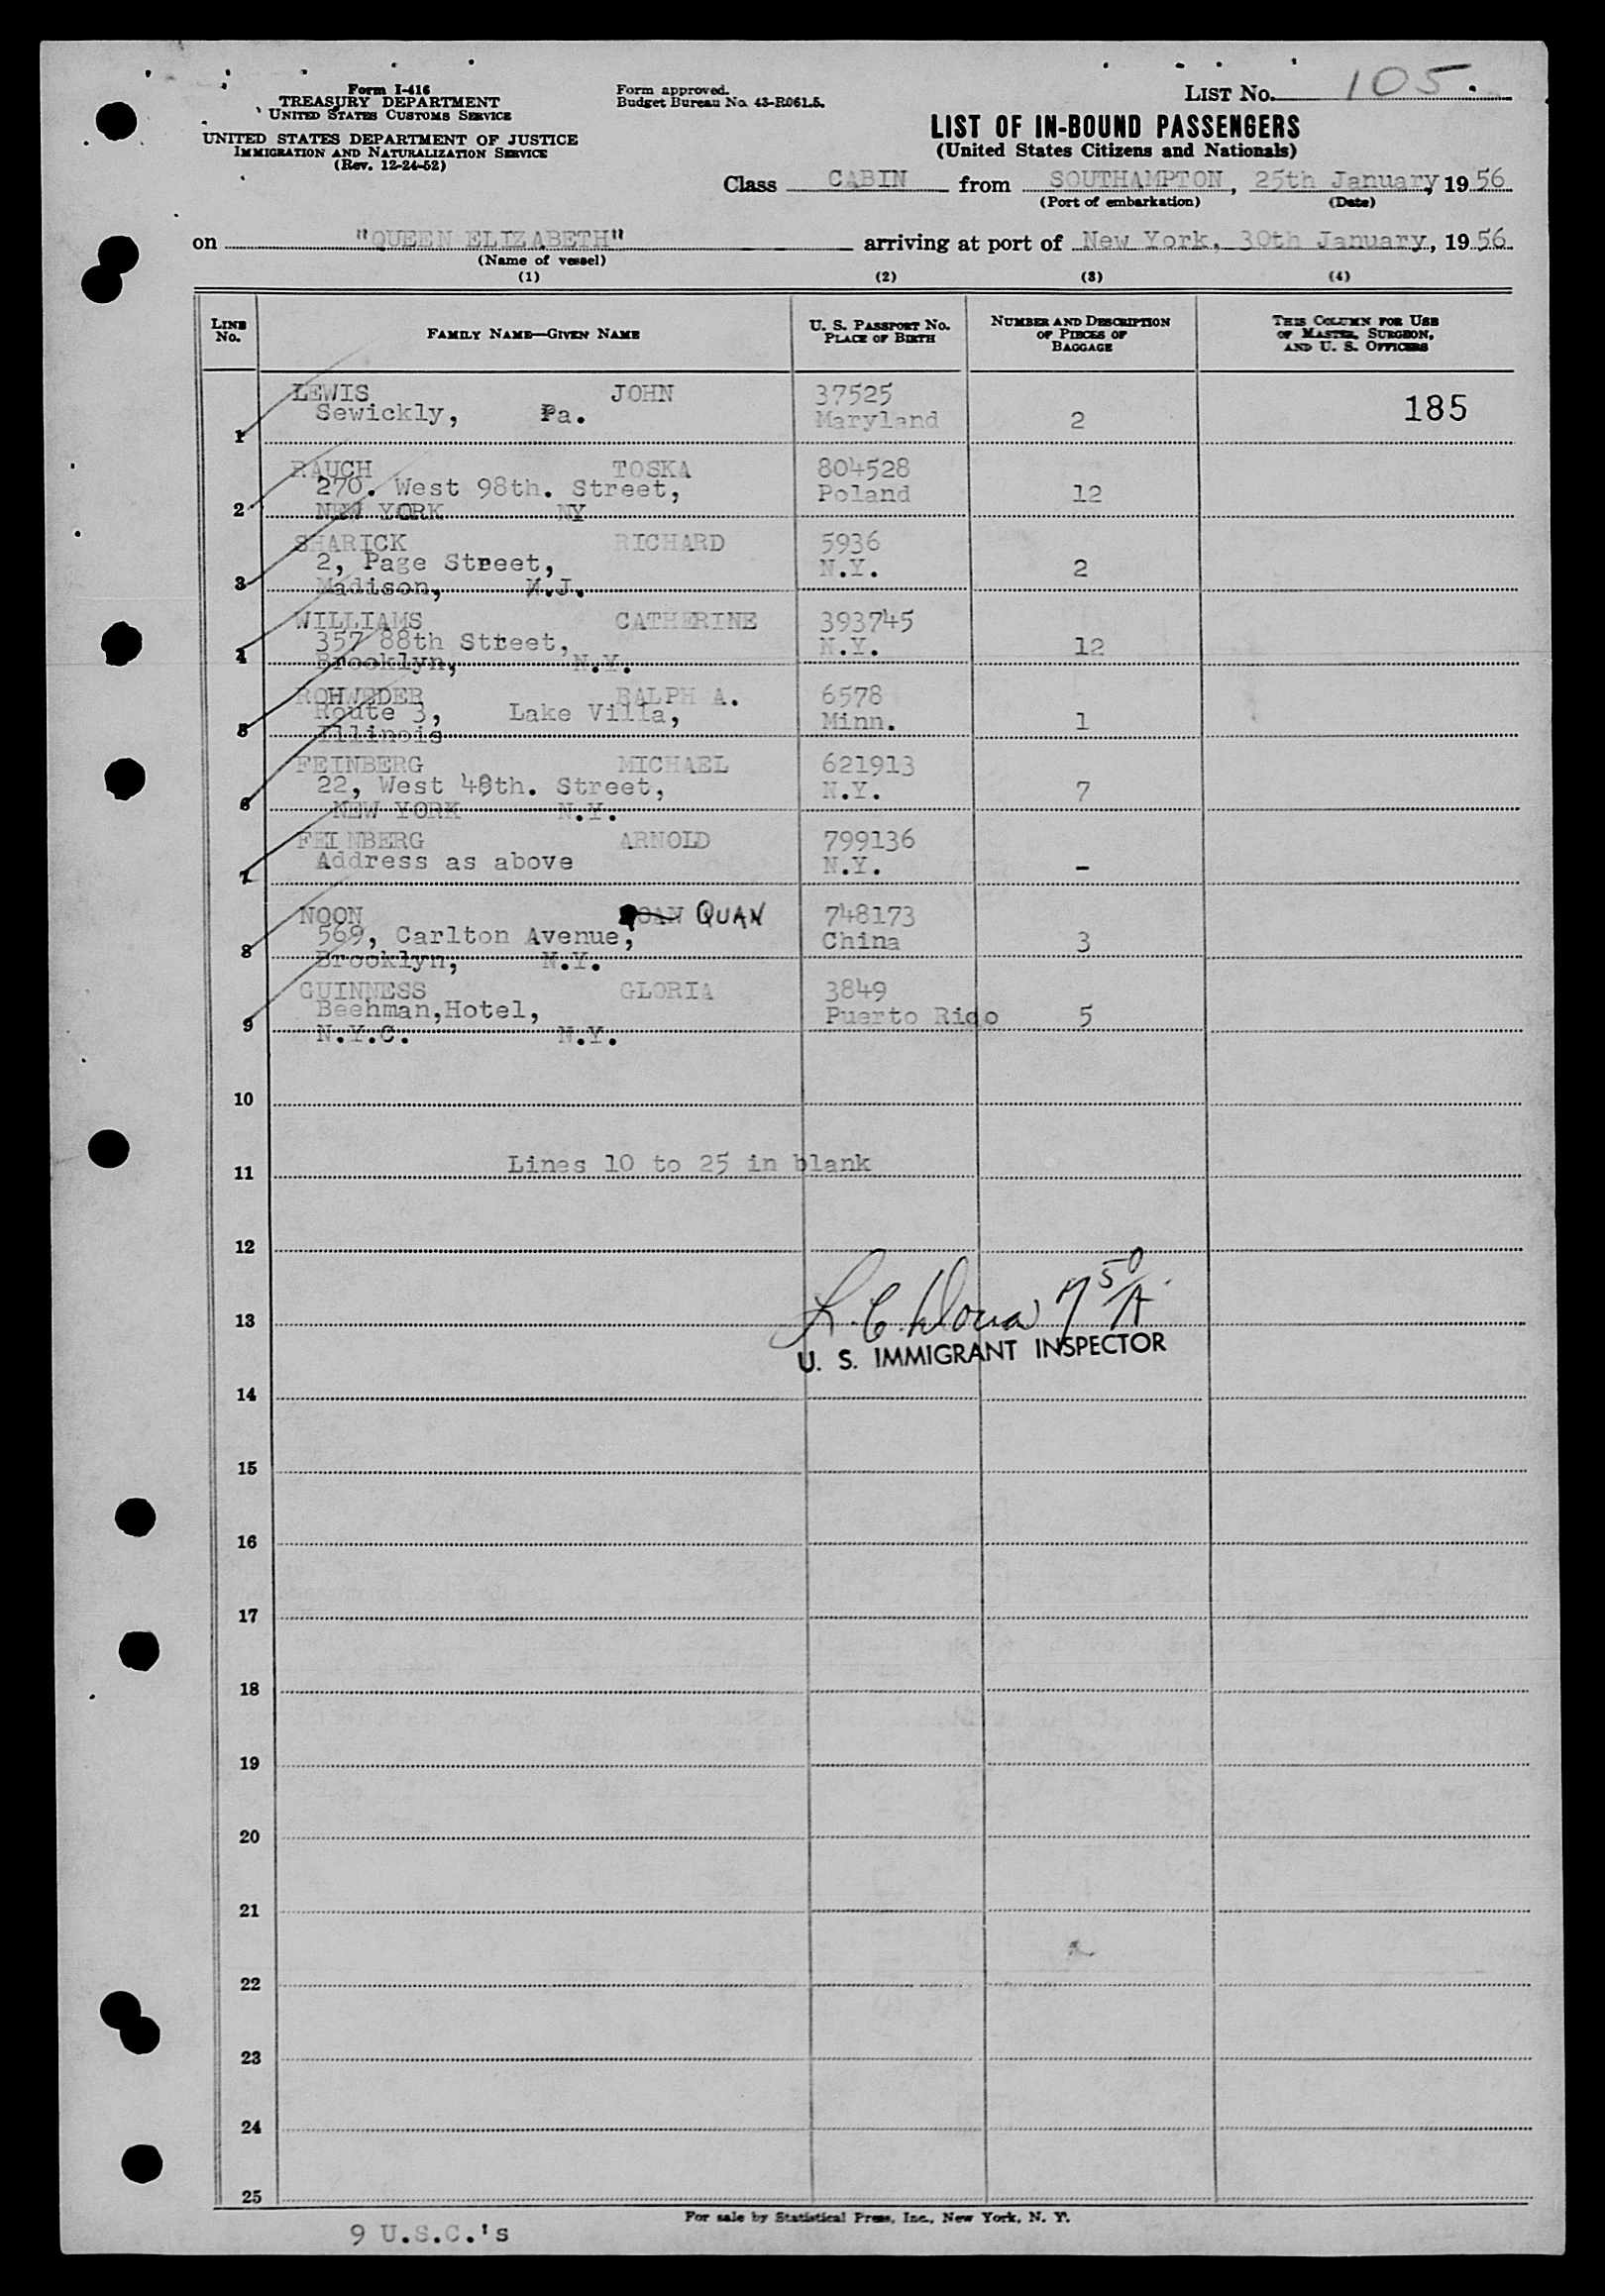 Form I-416
TREASURY DEPARTMENT
UNITED STATES CUSTOMS SERVICE
UNITED STATES DEPARTMENT OF JUSTICE
IMMIGRATION AND NATURALIZATION SERVICE
(Rev. 12-24-52)
Form approved.
Budget Bureau No. 43-R061.5.
LIST No. 105.
LIST OF IN-BOUND PASSENGERS
(United States Citizens and Nationals)
Class CABIN from SOUTHAMPTON, 25th January, 1956
(Port of embarkation) (Date)
on "QUEEN ELIZABETH" arriving at port of New York, 30th January, 1956
(Name of vessel)
(1) (2) (3) (4)
LINE No. FAMILY NAME—GIVEN NAME U. S. PASSPORT No. PLACE OF BIRTH NUMBER AND DESCRIPTION OF PIECES OF BAGGAGE THIS COLUMN FOR USE OF MASTER, SURGEON, AND U. S. OFFICERS
LEWIS JOHN 37525 185
1 Sewickly, Pa. Maryland 2
RAUCH TOSKA 804528
270. West 98th. Street, Poland 12
2 NEW YORK NY
SHARICK RICHARD 5936
2, Page Street, N.Y. 2
3 Madison, N.J.
WILLIAMS CATHERINE 393745
357 88th Street, N.Y. 12
4 Brooklyn, N.Y.
ROHWEDER RALPH A. 6578
Route 3, Lake Villa, Minn. 1
5 Illinois
FEINBERG MICHAEL 621913
22, West 48th. Street, N.Y. 7
6 NEW YORK N.Y.
FEINBERG ARNOLD 799136
7 Address as above N.Y. -
NOON QUAN 748173
569, Carlton Avenue, China 3
8 Brooklyn, N.Y.
GUINNESS GLORIA 3849
Beehman,Hotel, Puerto Rico 5
9 N.Y.C. N.Y.
10
11 Lines 10 to 25 in blank
12
13
U. S. IMMIGRANT INSPECTOR
14
15
16
17
18
19
20
21
22
23
24
25
For sale by Statistical Press, Inc., New York, N. Y.
9 U.S.C.'s